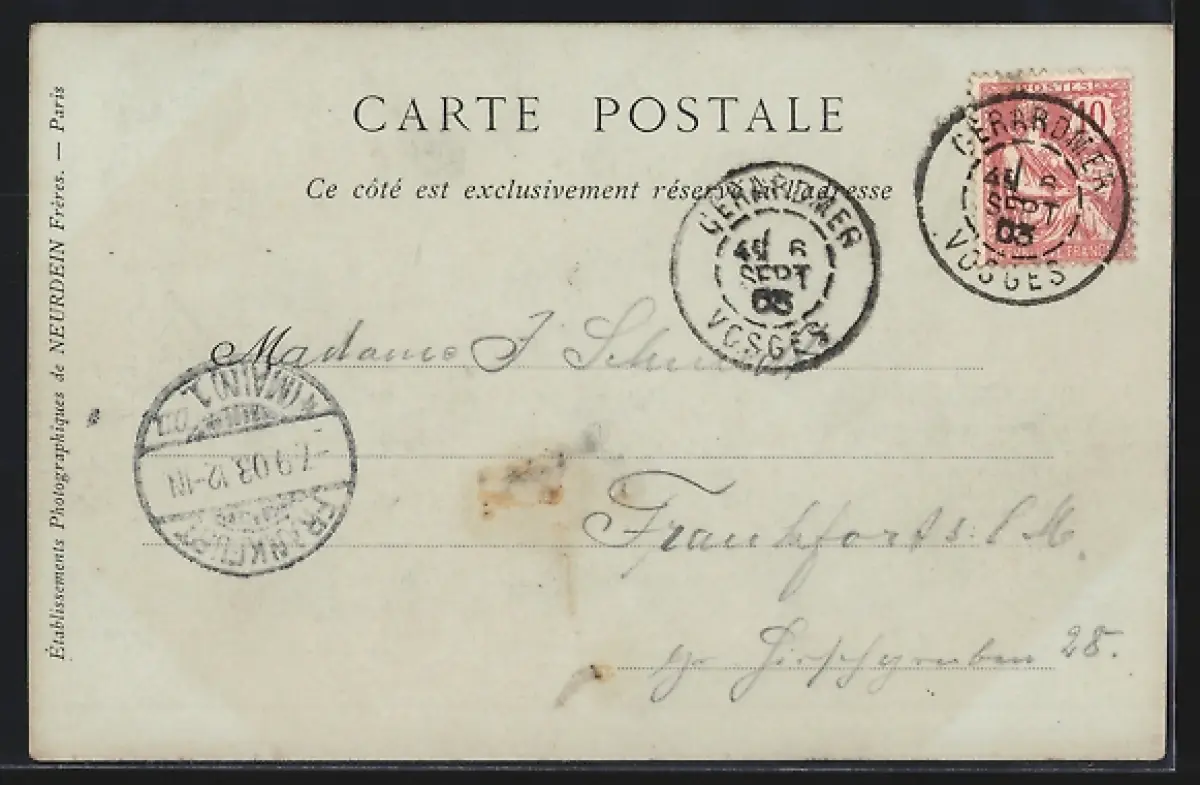 CARTE POSTALE
Ce côté est exclusivement réservé à l'adresse
POSTES
10
GERARDMER
6
SEPT
03
VOSGES
GERARDMER
6
SEPT
03
VOSGES
Madame J.
FRANKFURT
(MAIN) 1.
7.9.03.12-1N
Frankfort s./M.
gr Hirschgraben 28.
Établissements Photographiques de NEURDEIN Frères. — Paris